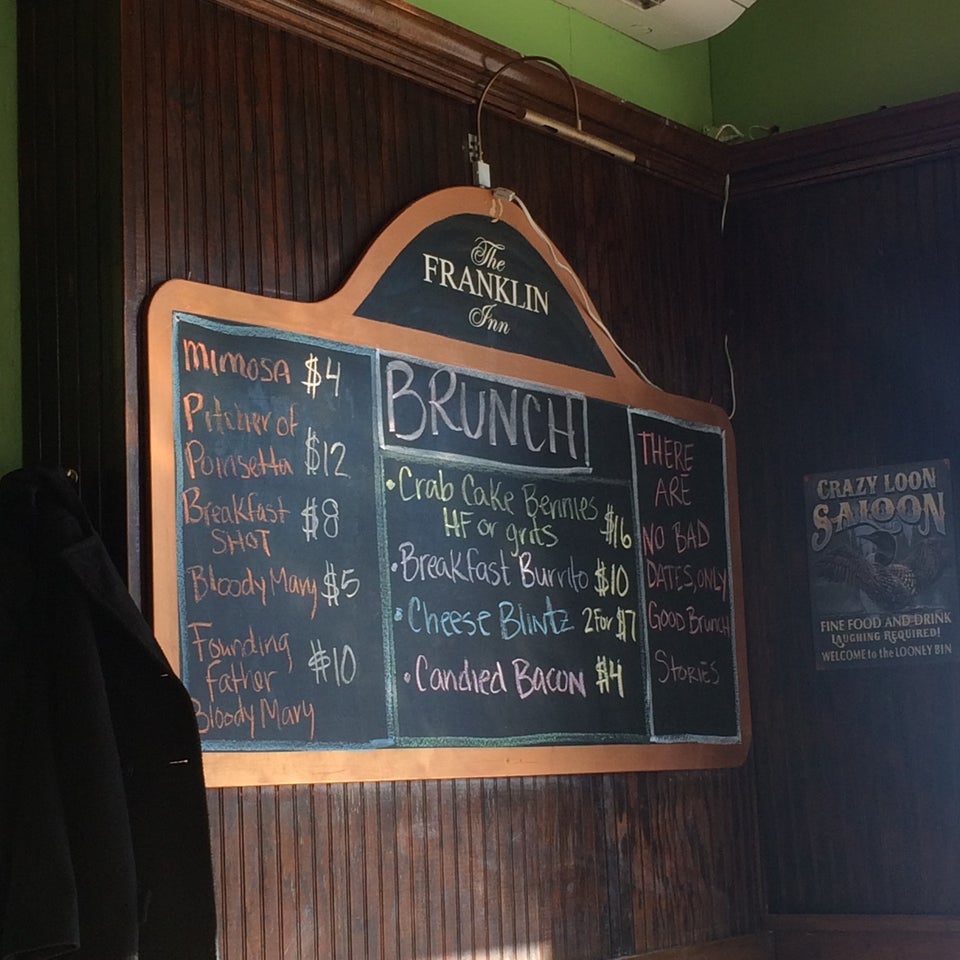 The
FRANKLIN
Inn
MIMOSA $4
Pitcher of
Poinsetta $12
Breakfast
SHOT $8
Bloody Mary $5
Founding
Father
Bloody Mary $10
BRUNCH
• Crab Cake Bennies
HF or grits $16
• Breakfast Burrito $10
• Cheese Blintz 2 for $7
• Candied Bacon $4
THERE
ARE
NO BAD
DATES, ONLY
GOOD BRUNCH
STORIES
CRAZY LOON
SALOON
FINE FOOD AND DRINK
LAUGHING REQUIRED!
WELCOME to the LOONEY BIN